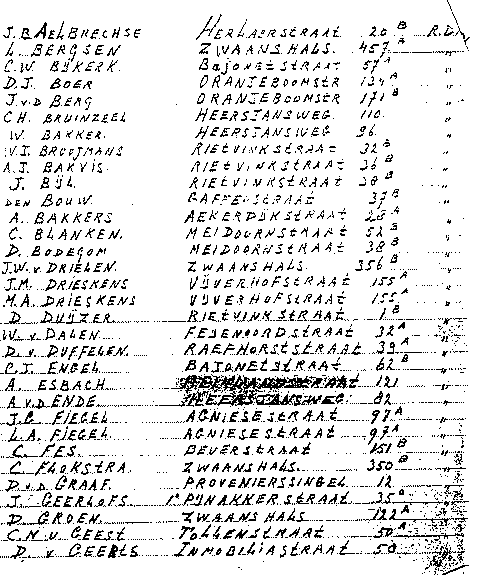 J.B AELBRECHSE HERLAERSTRAAT 20 B R.D.
L. BERGSEN ZWAANSHALS. 457 A
C.W. BIJKERK. BAJONETSTRAAT 57 A "
D.J. BOER ORANJEBOOMSTR 134 A "
J.v.d BERG ORANJEBOOMSTR 171 B "
C.H. BRUINZEEL HEERSJANSWEG. 110. "
W. BAKKER. HEERSJANSWEG 96. "
V.J. BROOJMANS RIETVINKSTRAAT 32 B "
A.J. BAKVIS. RIETVINKSTRAAT 36 B "
J. BIJL. RIETVINKSTRAAT 38 B "
DEN BOUW. GAFFELSTRAAT 37 B "
A. BAKKERS AEKERDIJKSTRAAT 28 A "
C. BLANKEN. MEIDOORNSTRAAT 52 B "
D. BODEGOM MEIDOORNSTRAAT 38 B "
J.W. v. DRIELEN. ZWAANSHALS. 356 B "
J.M. DRIESKENS VIJVERHOFSTRAAT 155 A "
M.A. DRIESKENS VIJVERHOFSTRAAT 155 A "
D. DUIJZER. RIETVINKSTRAAT 1 B "
W. v. DALEN FEIJENOORDSTRAAT 32 A "
D. v. DUFFELEN. RAEPHORSTSTRAAT 39 A "
C.J. ENGEL BAJONETSTRAAT 62 B "
A. ESBACH 121 "
A.v.D.ENDE. HEERSJANSWEG. 82 "
J.C. FIEGEL AGNIESESTRAAT 97 A "
L.A. FIEGEL. AGNIESESTRAAT 97 A "
C. FES. BEVERSTRAAT 151 B "
C FLOKSTRA. ZWAANSHALS. 350 B "
D.v.d GRAAF. PROVENIERSSINGEL 12 "
J. GEERLOFS. 1e PIJNAKKERSTRAAT 35 A "
D. GROEN. ZWAANSHALS 122 A "
C.N. v GEEST TOLLENSTRAAT 50 A "
D. v GEERTS INMOBILIASTRAAT 50 "